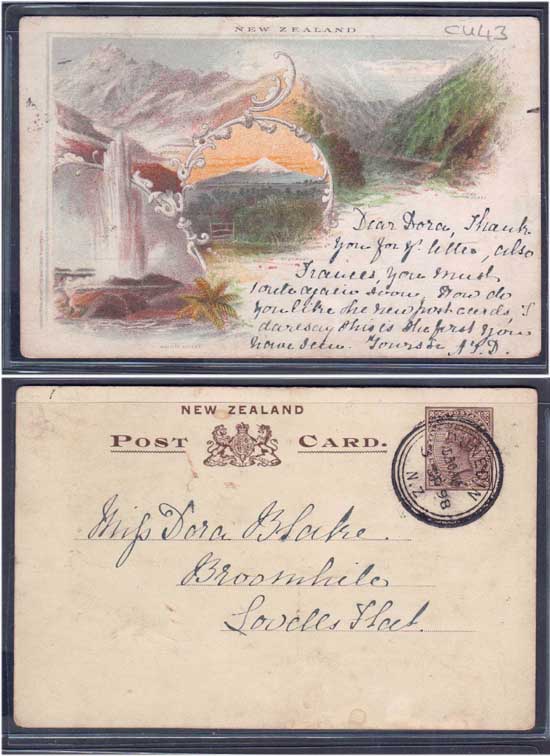 NEW ZEALAND
CU43
Dear Dora, Thank
you for yr letter, also
Frances, you must
write again soon. How do
you like the new post cards, I
daresay this is the first you
have seen. Yours
NEW ZEALAND
POST CARD.
DUNEDIN
98
N.Z.
Miss Dora Blake.
Broomhile
Lovells Flat.